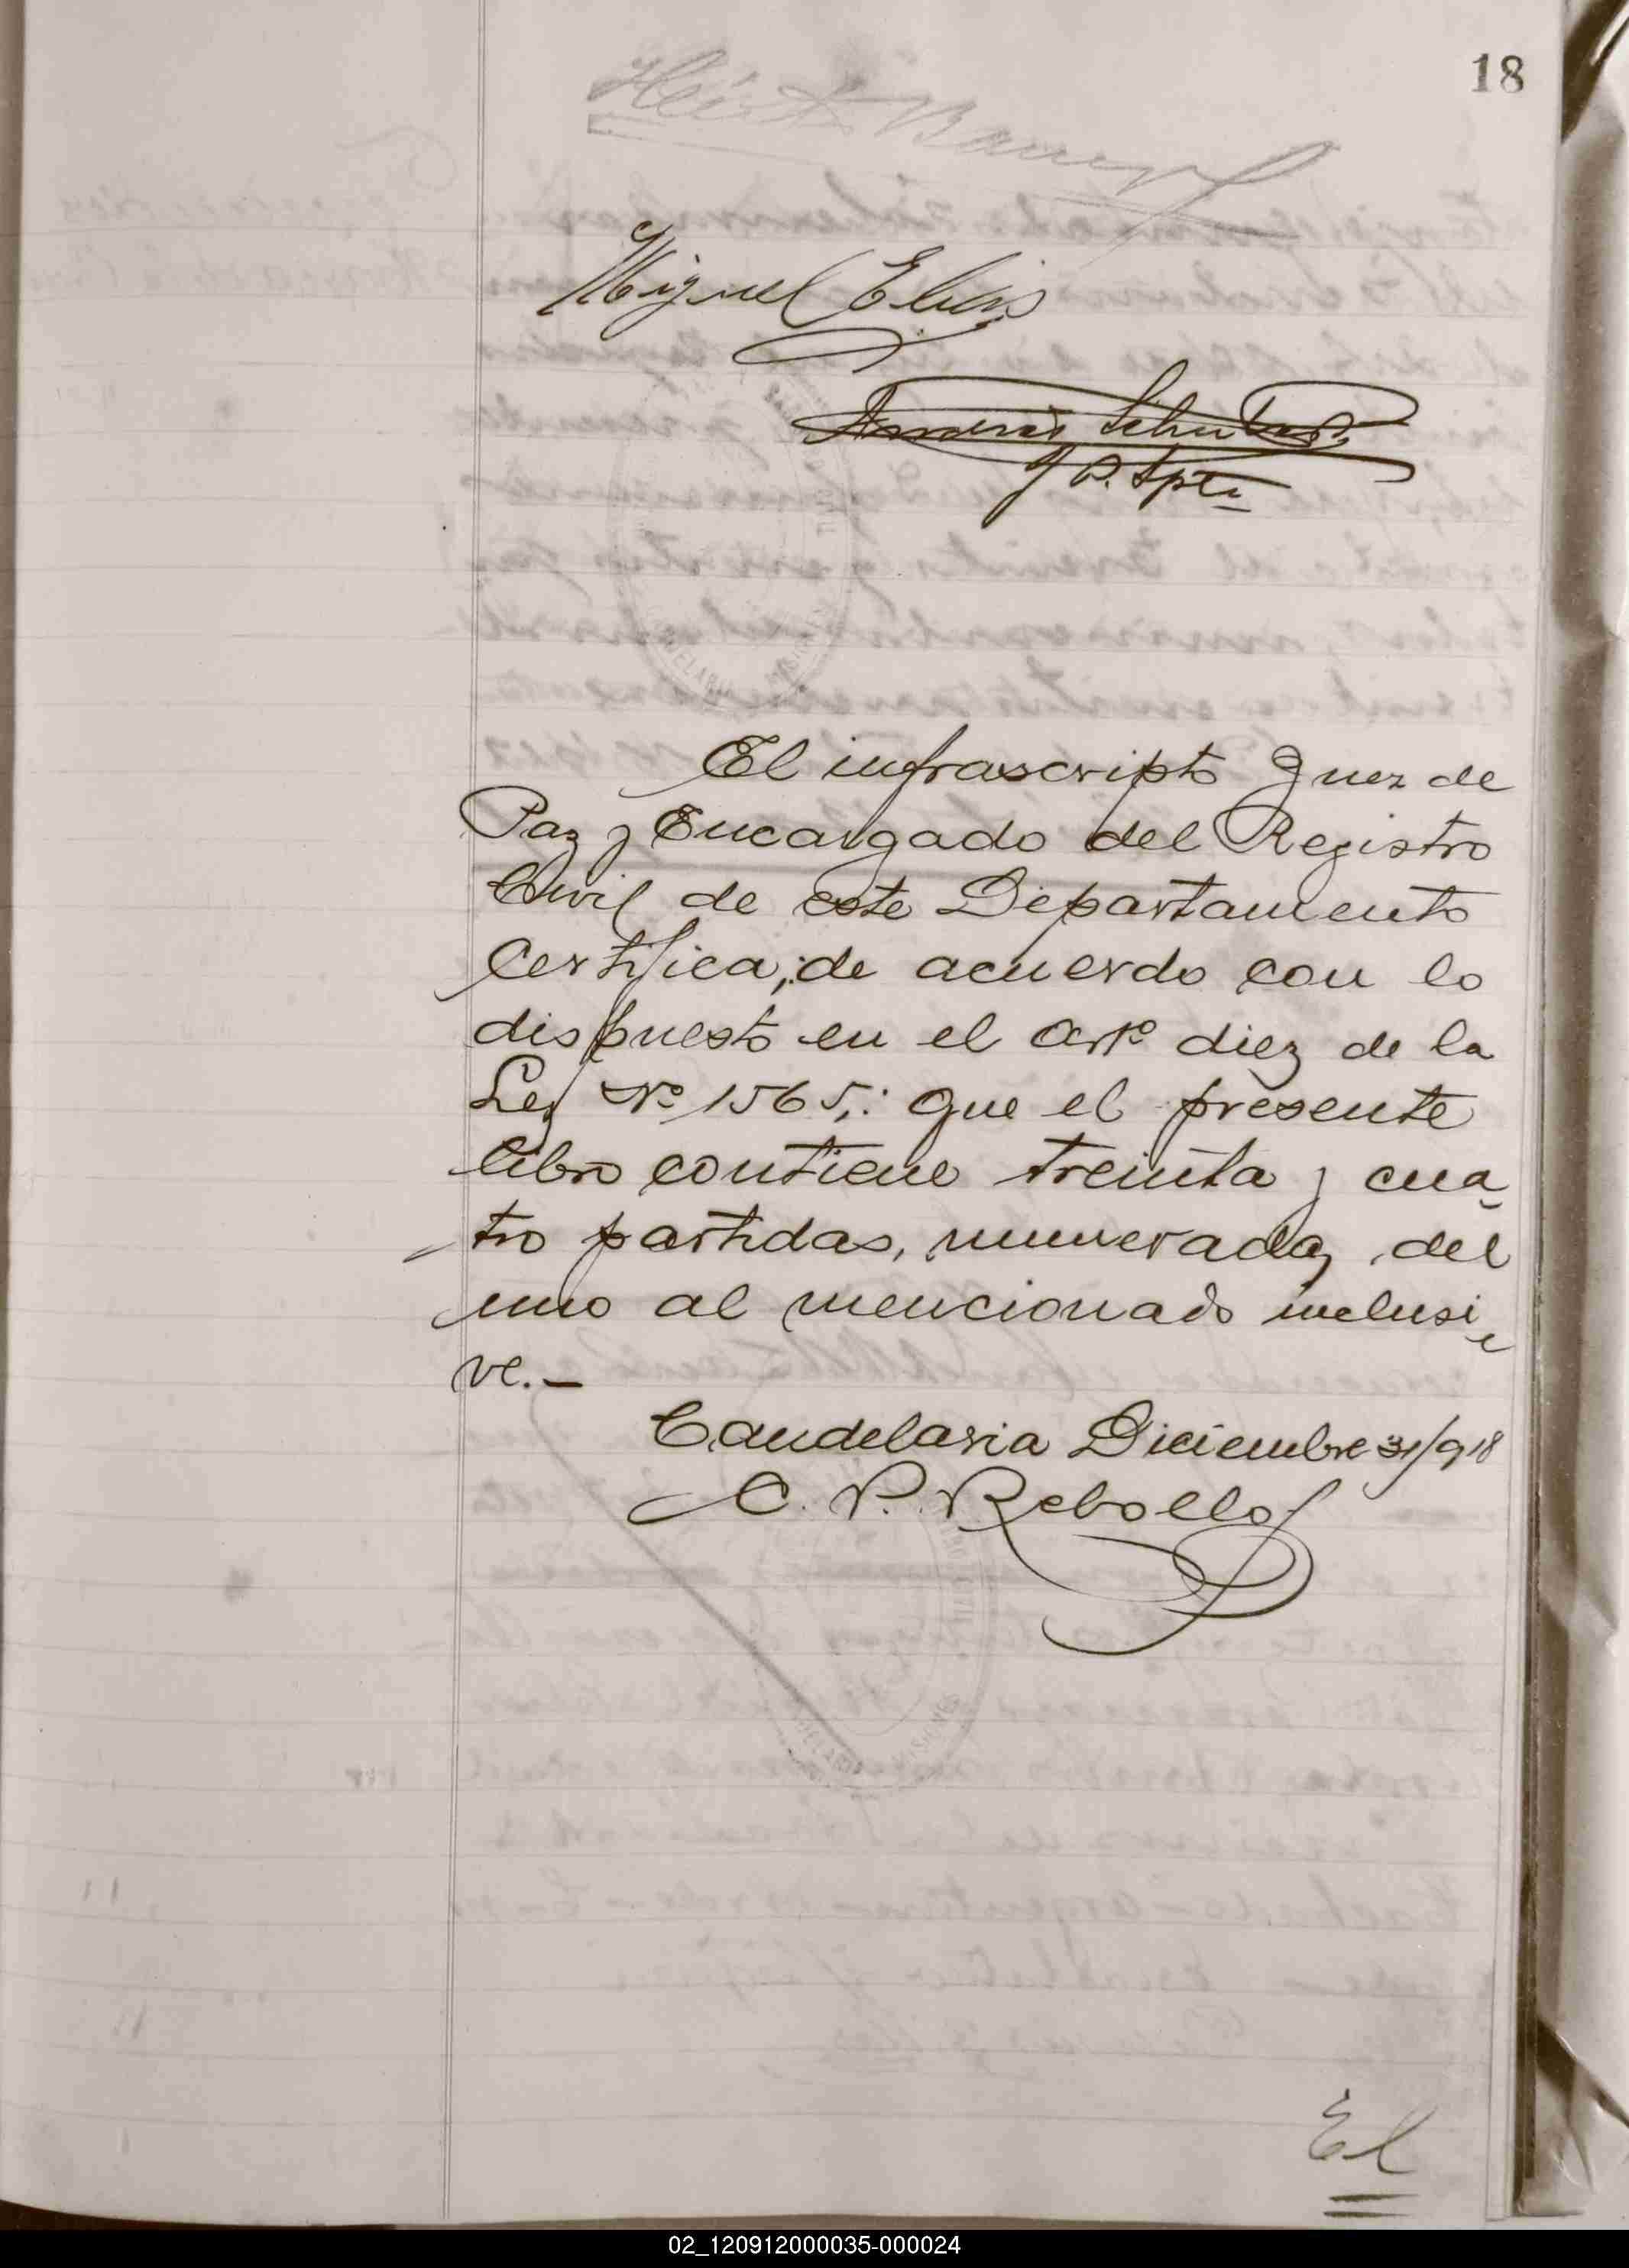 18
Miguel
Andrés
El infrascripto Juez de
Paz y Encargado del Registro
Civil de este Departamento
Certifica; de acuerdo con lo
dispuesto en el artº diez de la
Ley Nº 1565,: que el presente
libro contiene treinta y cua
tro partidas, numeradas del
uno al mencionado inclusi
ve.—
Candelaria Diciembre 31/918
C. P. Rebollo
El
02_120912000035-000024